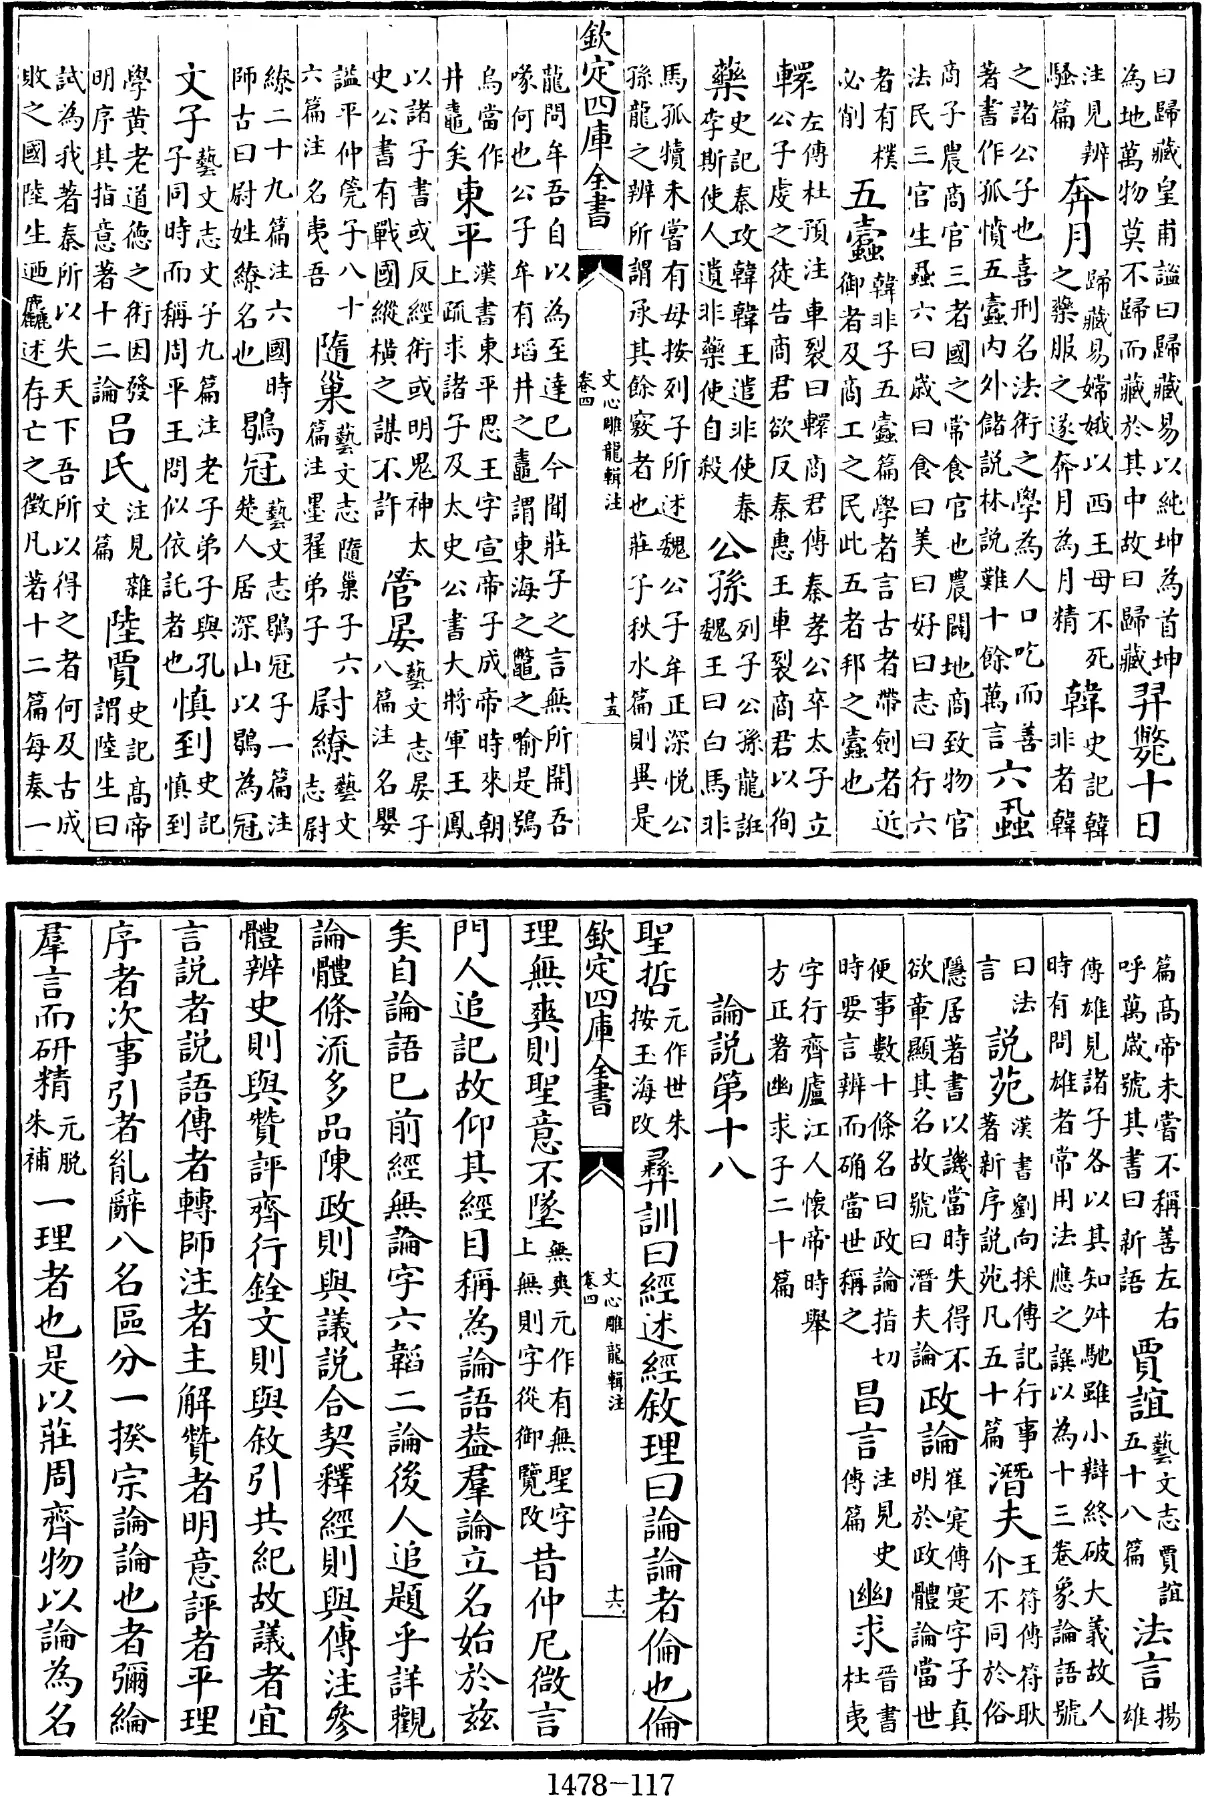 曰歸藏皇甫謐曰歸藏易以純坤為首坤為地萬物莫不歸而藏於其中故曰歸藏羿斃十日
注見辨騷篇奔月歸藏易嫦娥以西王母不死之藥服之遂奔月為月精韓史記韓非者韓
之諸公子也喜刑名法術之學為人口吃而善著書作孤憤五蠹內外儲説林説難十餘萬言六蝨
商子農商官三者國之常食官也農闢地商致物官法民三官生蝨六曰歲曰食曰美曰好曰志曰行六
者有樸必削五蠹韓非子五蠹篇學者言古者帶劍者近御者及商工之民此五者邦之蠹也
轘左傳杜預注車裂曰轘商君傳秦孝公卒太子立公子虔之徒告商君欲反秦惠王車裂商君以徇
藥史記秦攻韓韓王遣非使秦李斯使人遺非藥使自殺公孫列子公孫龍誑魏王曰白馬非
馬孤犢未嘗有母按列子所述魏公子牟正深悦公孫龍之辨所謂承其餘竅者也莊子秋水篇則異是
欽定四庫全書 文心雕龍輯注 卷四 十五
龍問牟吾自以為至達已今聞莊子之言無所開吾喙何也公子牟有埳井之鼃謂東海之鼈之喻是鴞
烏當作井鼃矣東平漢書東平思王字宣帝子成帝時來朝上疏求諸子及太史公書大將軍王鳳
以諸子書或反經術或明鬼神太史公書有戰國縱橫之謀不許管晏藝文志晏子八篇注名嬰
諡平仲筦子八十六篇注名夷吾隨巢藝文志隨巢子六篇注墨翟弟子尉繚藝文志尉
繚二十九篇注六國時師古曰尉姓繚名也鶡冠藝文志鶡冠子一篇注楚人居深山以鶡為冠
文子藝文志文子九篇注老子弟子與孔子同時而稱周平王問似依託者也慎到史記慎到
學黄老道徳之術因發明序其指意著十二論吕氏注見雜文篇陸賈史記髙帝謂陸生曰
試為我著秦所以失天下吾所以得之者何及古成敗之國陸生廼麤述存亡之徵凡著十二篇每奏一
篇髙帝未嘗不稱善左右呼萬歲號其書曰新語賈誼藝文志賈誼五十八篇法言揚雄
傳雄見諸子各以其知舛馳雖小辯終破大義故人時有問雄者常用法應之譔以為十三卷象論語號
曰法言説苑漢書劉向採傳記行事著新序説苑凡五十篇潛夫王符傳符耿介不同於俗
隱居著書以譏當時失得不欲章顯其名故號曰潛夫論政論崔寔傳寔字子真明於政體論當世
便事數十條名曰政論指切時要言辨而确當世稱之昌言注見史傳篇幽求晉書杜夷
字行齊廬江人懷帝時舉方正著幽求子二十篇
論説第十八
聖哲元作世朱按玉海改彞訓曰經述經敘理曰論論者倫也倫
欽定四庫全書 文心雕龍輯注 卷四 十六
理無爽則聖意不墜無爽元作有無聖字上無則字從御覽改昔仲尼微言
門人追記故仰其經目稱為論語葢羣論立名始於兹
矣自論語已前經無論字六韜二論後人追題乎詳觀
論體條流多品陳政則與議説合契釋經則與傳注參
體辨史則與贊評齊行銓文則與敘引共紀故議者宜
言説者説語傳者轉師注者主解贊者明意評者平理
序者次事引者胤辭八名區分一揆宗論論也者彌綸
羣言而研精元脱朱補一理者也是以莊周齊物以論為名
1478-117